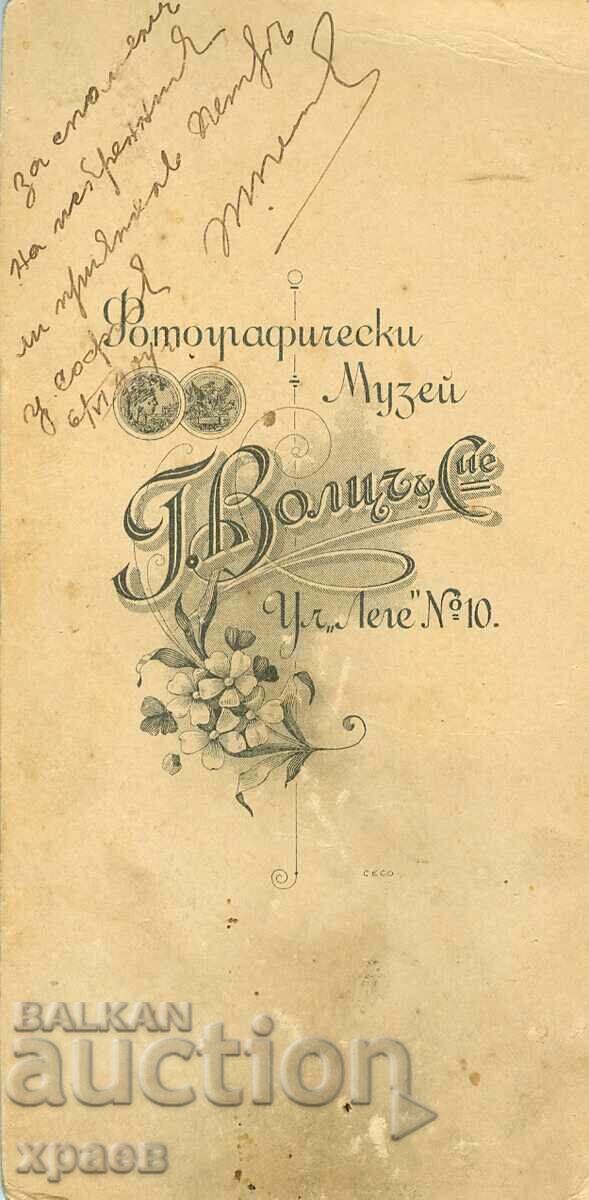 За споменъ
на искренния
ми приятель Петръ
гр. София
Фотографически
Музей
Г. Волицъ & Сие
Ул. „Леге“ № 10.
CECO
BALKAN
auction
храев